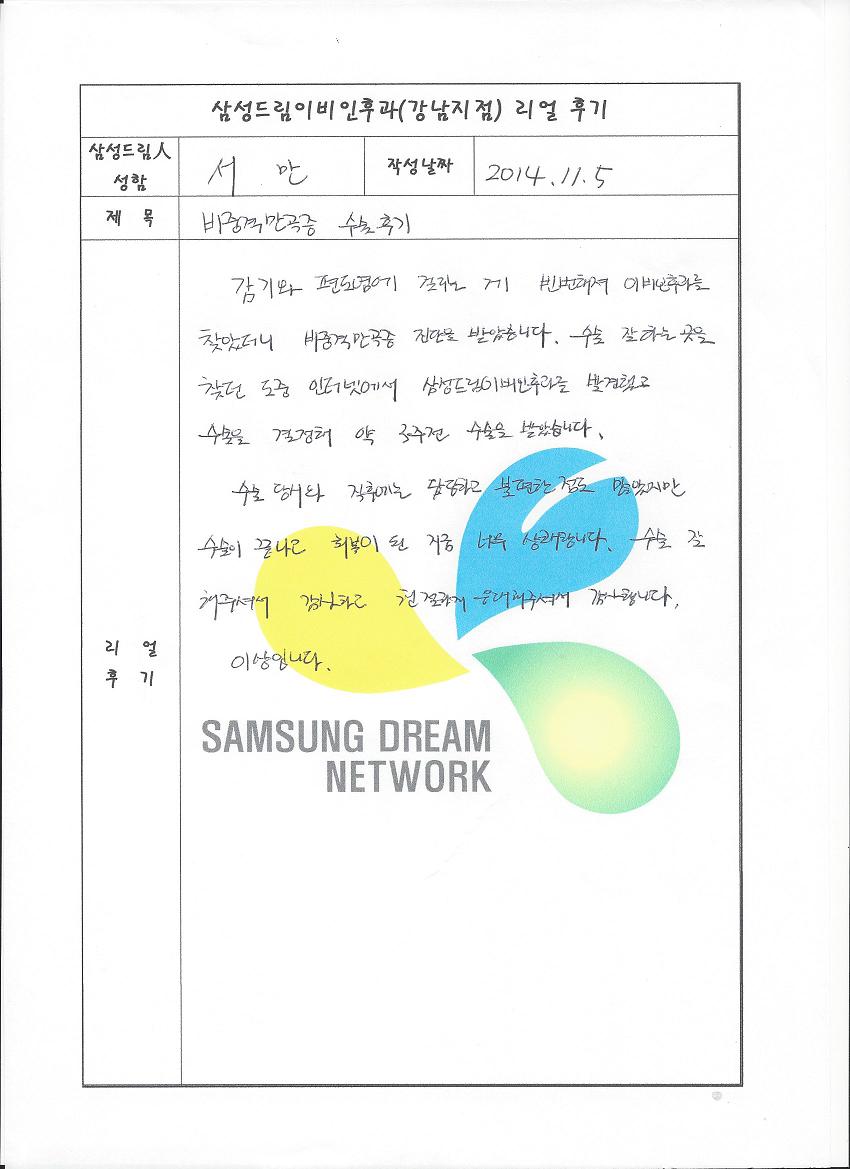 삼성드림이비인후과(강남지점) 리얼 후기
삼성드림人
성함
서 만
작성날짜
2014.11.5
제 목
비중격만곡증 수술후기
감기와 편도염에 걸리는 게 빈번해져 이비인후과를
찾았더니 비중격만곡증 진단을 받았습니다. 수술 잘하는 곳을
찾던 도중 인터넷에서 삼성드림이비인후과를 발견했고
수술을 결정해 약 3주전 수술을 받았습니다.
수술 당시와 직후에는 답답하고 불편한 점도 많았지만
수술이 끝나고 회복이 된 지금 너무 상쾌합니다. 수술 잘
해주셔서 감사하고 친절하게 응대해주셔서 감사합니다.
이상입니다.
리 얼
후 기
SAMSUNG DREAM
NETWORK